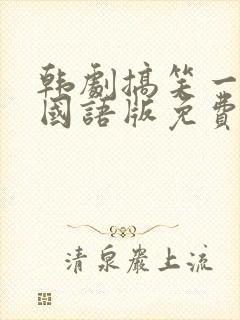 韩劇搞笑一
國語版免費
清泉巖上流